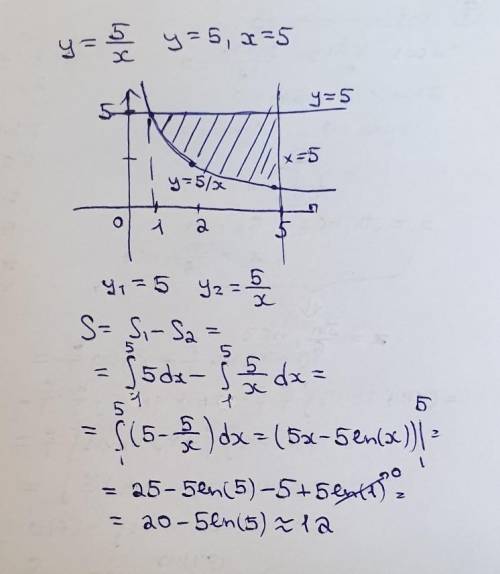 y = 5/x   y = 5, x = 5
5
y = 5
x = 5
y = 5/x
0 1 2 5
y₁ = 5   y₂ = 5/x
S = S₁ - S₂ =
= ∫₁⁵ 5dx - ∫₁⁵ 5/x dx =
= ∫₁⁵ (5 - 5/x) dx = (5x - 5ln(x)) |₁⁵ =
= 25 - 5ln(5) - 5 + 5ln(1)⁰ =
= 20 - 5ln(5) ≈ 12